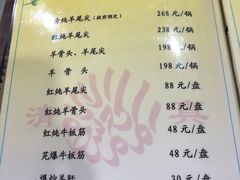 清炖羊尾尖（提前预定） 268 元/锅
红炖羊尾尖 238 元/锅
羊骨头、羊尾尖 198 元/锅
羊 骨 头 198 元/锅
红炖羊尾尖 88 元/盘
红炖羊骨头 88 元/盘
红炖牛板筋 48 元/盘
芫爆牛板筋 48 元/盘
爆炒羊肝 30 元/盘
清 真